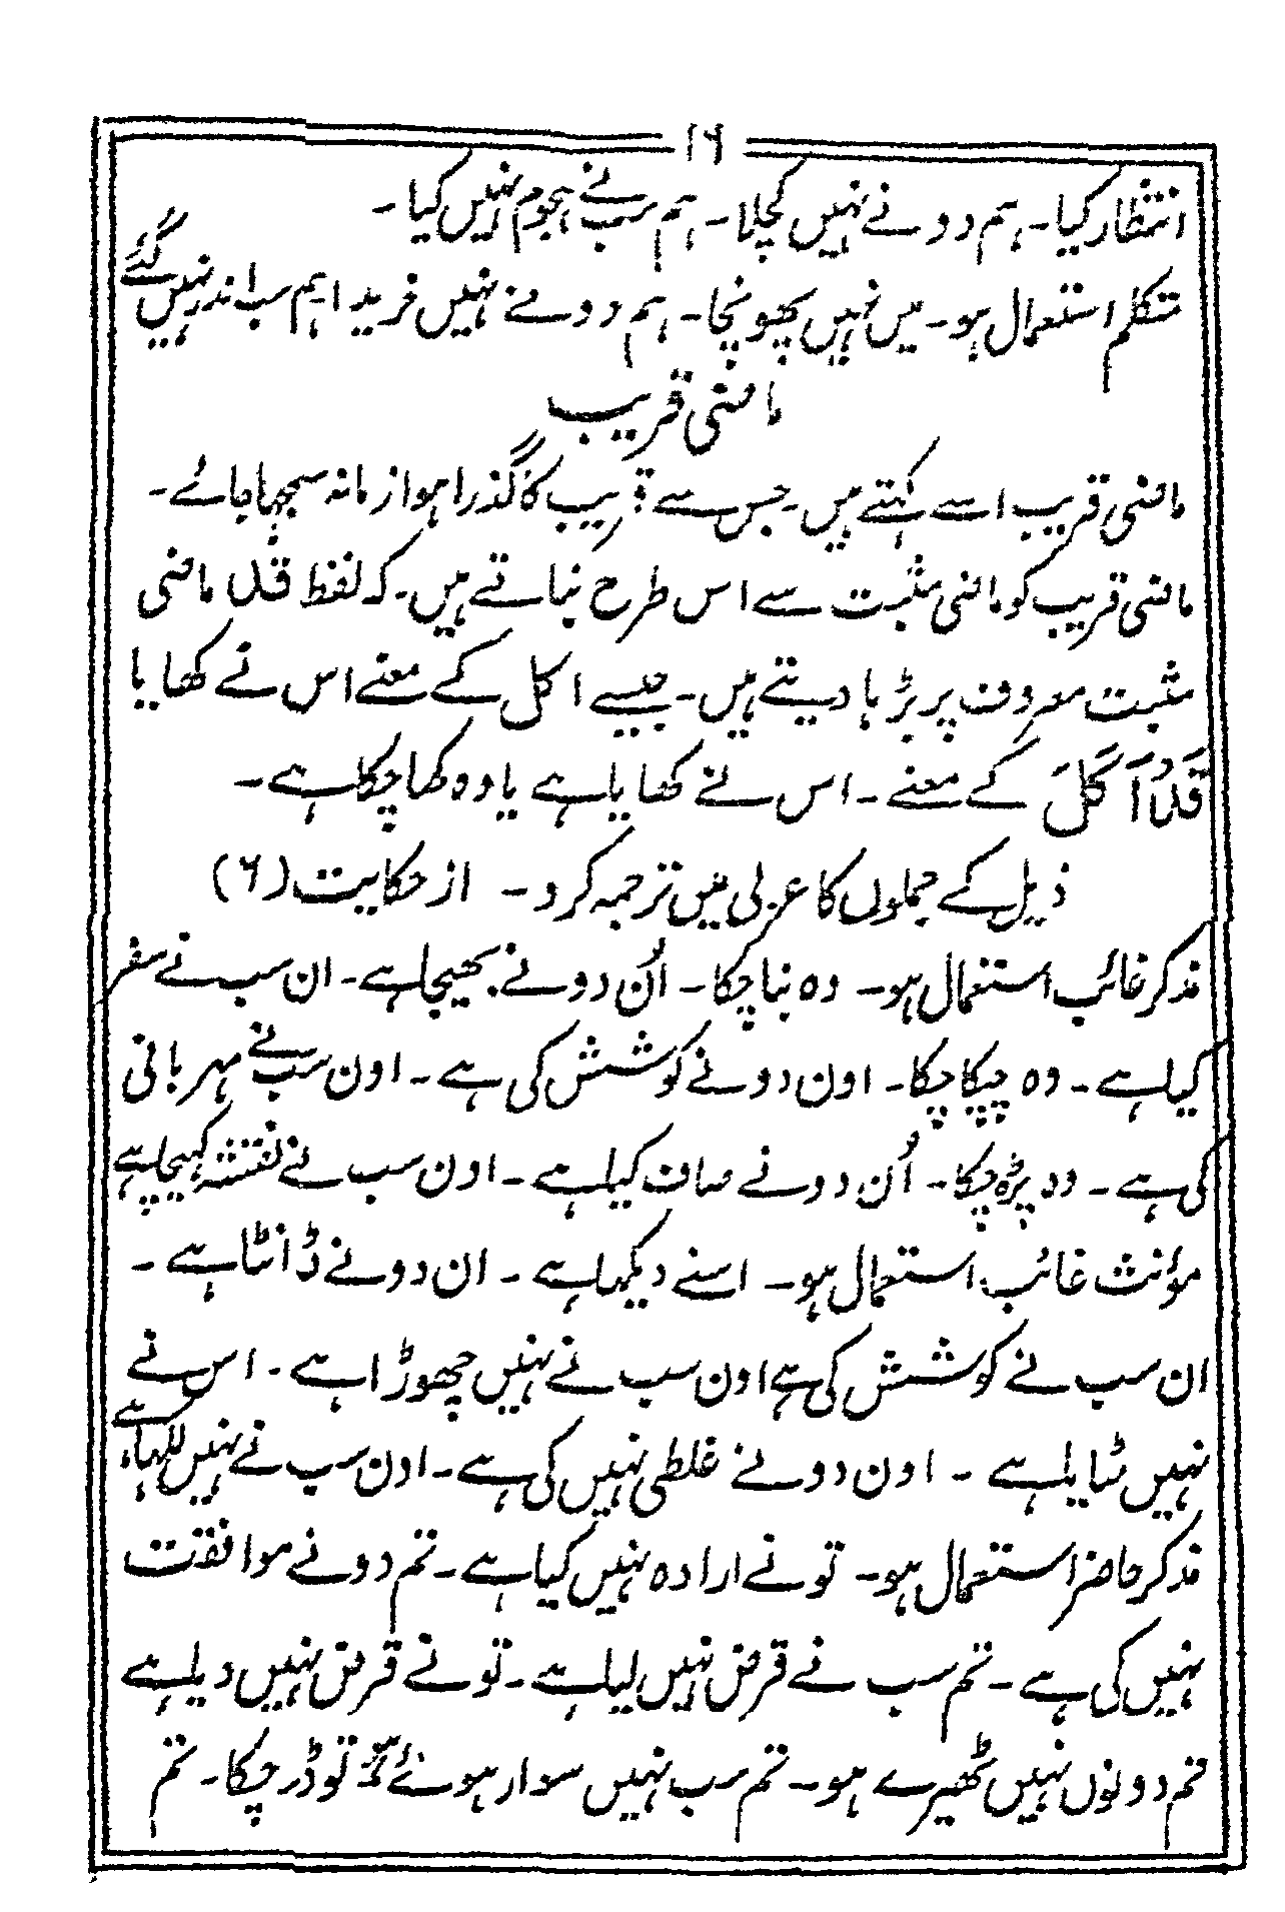 ۱۶
انتظار کیا۔ ہم دو نے نہیں کچلا۔ ہم سب نے ہجوم نہیں کیا۔
متکلم استعمال ہو۔ میں نہیں پہونچا۔ ہم دو نے نہیں خریدا ہم سب اندر نہیں گئے
ماضی قریب
ماضی قریب اسے کہتے ہیں۔ جس سے قریب کا گذرا ہوا زمانہ سمجہا جائے۔
ماضی قریب کو ماضی مثبت سے اس طرح بناتے ہیں۔ کہ لفظ قد ماضی
مثبت معروف پر بڑہا دیتے ہیں۔ جیسے اکل کے معنے اس نے کھایا یا
قَدْ اَکَلَ کے معنے۔ اس نے کھایا ہے یا وہ کھا چکا ہے۔
ذیل کے جملوں کا عربی میں ترجمہ کرو۔ از حکایت (۶)
مذکر غائب استعمال ہو۔ وہ بنا چکا۔ اُن دو نے بھیجا ہے۔ ان سب نے سفر
کیا ہے۔ وہ چپکا چکا۔ اون دو نے کوشش کی ہے۔ اون سب نے مہربانی
کی ہے۔ وہ پڑہ چکا۔ اُن دو نے صاف کیا ہے۔ اون سب نے نقشہ کہیچا ہے
مؤنث غائب استعمال ہو۔ اسنے دیکہا ہے۔ ان دو نے ڈانٹا ہے۔
ان سب نے کوشش کی ہے اون سب نے نہیں چھوڑا ہے۔ اس نے
نہیں بٹایا ہے۔ اون دو نے غلطی نہیں کی ہے۔ اون سب نے نہیں لکہا ہے
مذکر حاضر استعمال ہو۔ تو نے ارادہ نہیں کیا ہے۔ تم دو نے موافقت
نہیں کی ہے۔ تم سب نے قرض نہیں لیا ہے۔ تو نے قرض نہیں دیا ہے
تم دونوں نہیں ٹھیرے ہو۔ تم سب نہیں سوار ہوئے تو ڈر چکا۔ تم